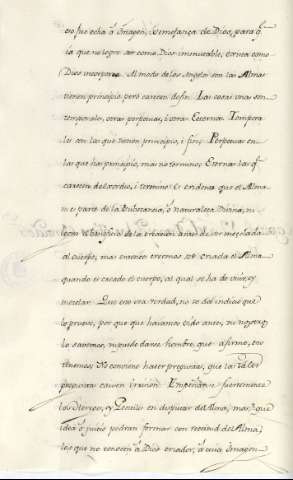 ero fue echa à Imagen, i semejança de Dios, para q̃
ia que no logre ser como Dios immutable, ò crea como
Dios incorporea. Al modo de los Angeles son las Almas
tienen principio pero carecen de fin. Las cosas unas son
temporales, otras perpetuas, i otras Eternas. Tempora
les son las que tienen principio, i fin; Perpetuas en
las que hai principio, mas no termino; Eternas las q̃
carecen de i termino. Es evidente que el Alma
ni es parte de la Substancia, ò naturaleza Divina, ni
antes de ser mezclada
al cuerpo, mas creemos ser criada el Alma
quando es criado el cuerpo, al qual se ha de unir, y
mezclar. Que esto sea verdad, no se dèl indicio que
lo pruebe, por que que haviamos sido antes, ni nosotros
lo sabemos, ni puede darse hombre que afirme, en
tenemos. No conviene hacer preguntas, que la tal
pregunta causa irrision. Empeñan fuertemente
los Hereges, y Gentiles en disputar del Alma; mas que
idea ò juicio podran formar con rectitud del Alma,
los que no conocen à Dios criador, à cuia Imagen